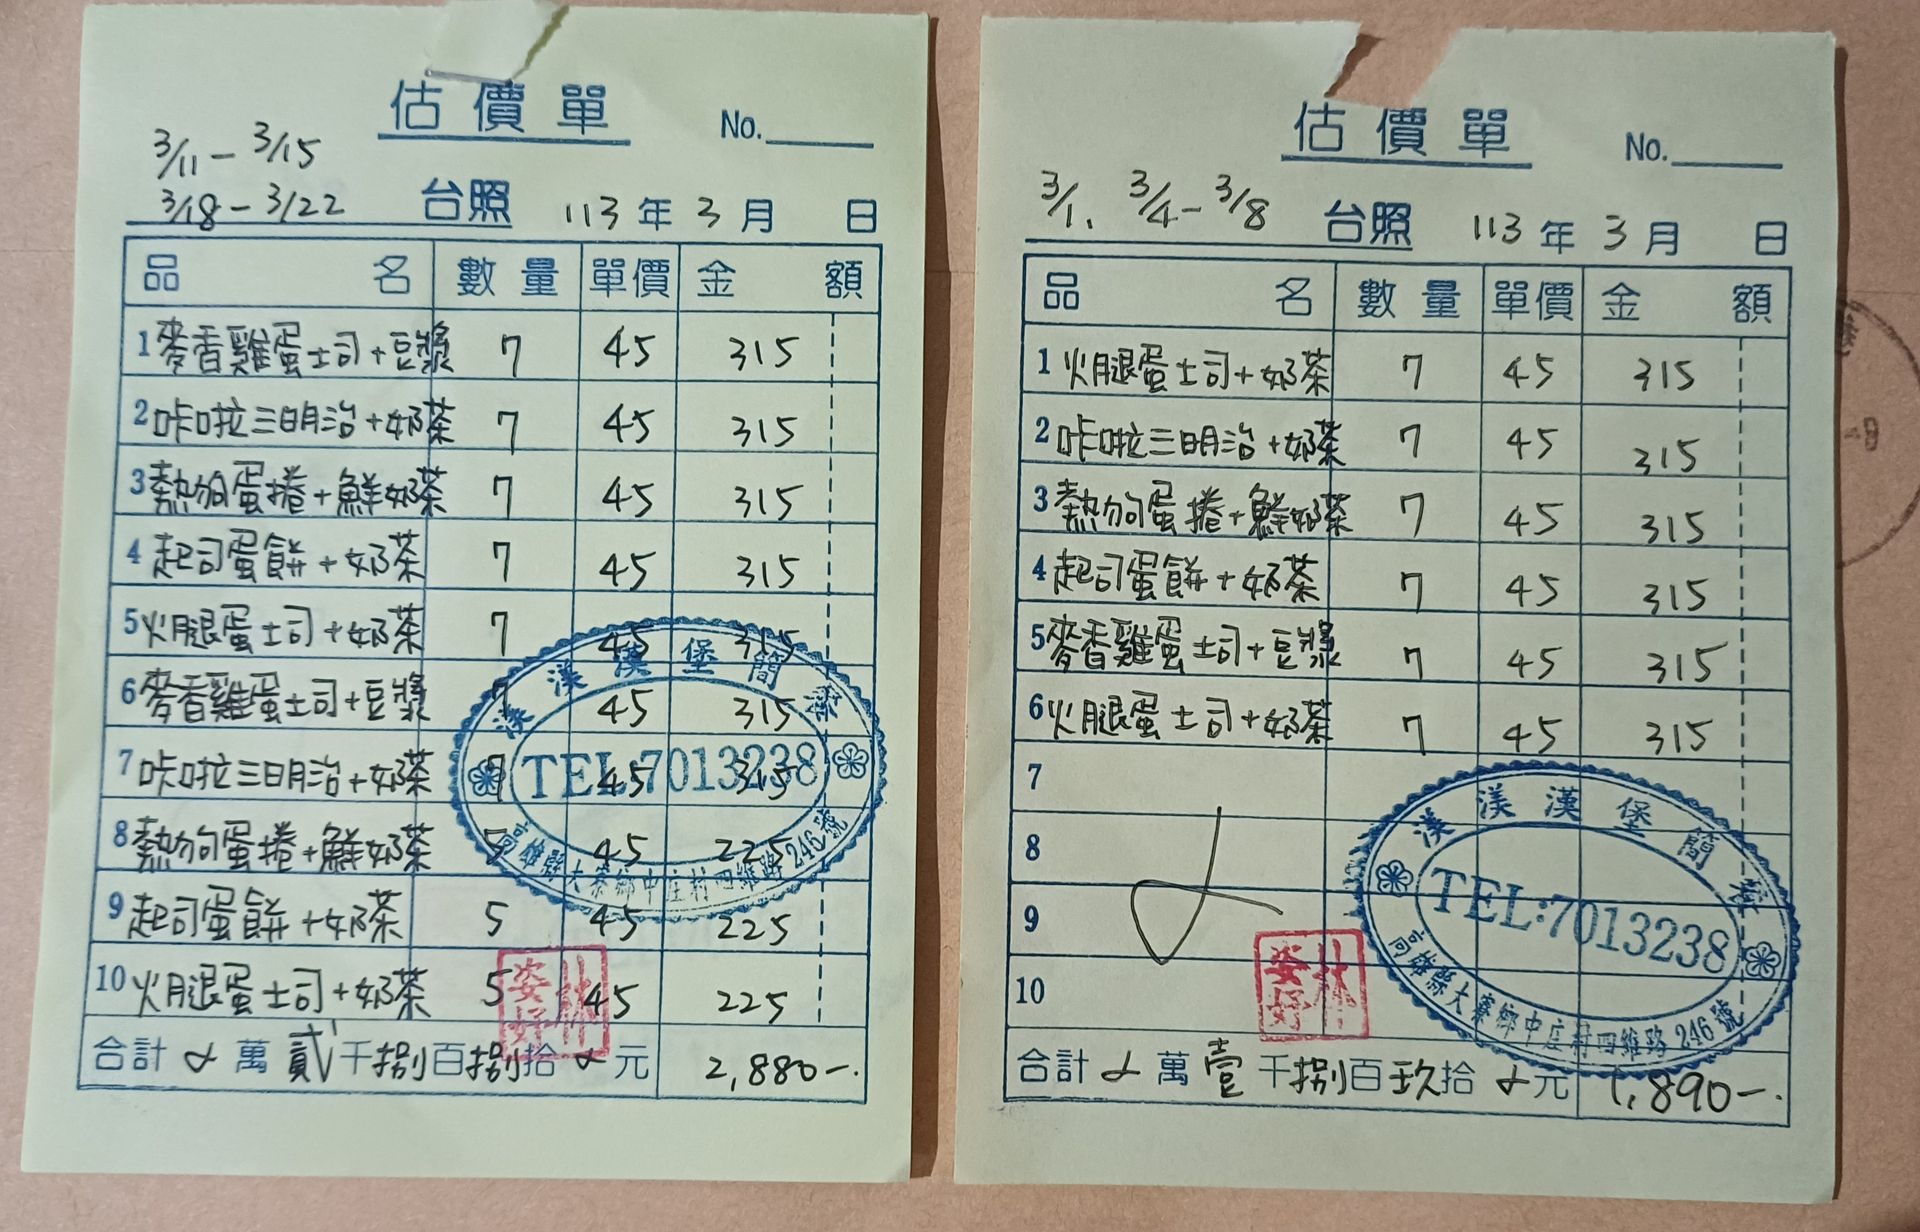 估價單
No.
3/11-3/15
3/18-3/22 台照 113年3月 日
品名 數量 單價 金額
1 麥香雞蛋土司+豆漿 7 45 315
2 咔啦三明治+奶茶 7 45 315
3 熱狗蛋捲+鮮奶茶 7 45 315
4 起司蛋餅+奶茶 7 45 315
5 火腿蛋土司+奶茶 7 45 315
6 麥香雞蛋土司+豆漿 7 45 315
7 咔啦三明治+奶茶 7 45 315
8 熱狗蛋捲+鮮奶茶 5 45 225
9 起司蛋餅+奶茶 5 45 225
10 火腿蛋土司+奶茶 5 45 225
合計 萬貳千捌百捌拾 元 2,880-.
渼渼漢堡簡餐
TEL:7013238
高雄縣大寮鄉中庄村四維路246號
林姿妤
估價單
No.
3/1. 3/4-3/8 台照 113年3月 日
品名 數量 單價 金額
1 火腿蛋土司+奶茶 7 45 315
2 咔啦三明治+奶茶 7 45 315
3 熱狗蛋捲+鮮奶茶 7 45 315
4 起司蛋餅+奶茶 7 45 315
5 麥香雞蛋土司+豆漿 7 45 315
6 火腿蛋土司+奶茶 7 45 315
7
8
9
10
合計 萬壹千捌百玖拾 元 1,890-.
渼渼漢堡簡餐
TEL:7013238
高雄縣大寮鄉中庄村四維路246號
林姿妤